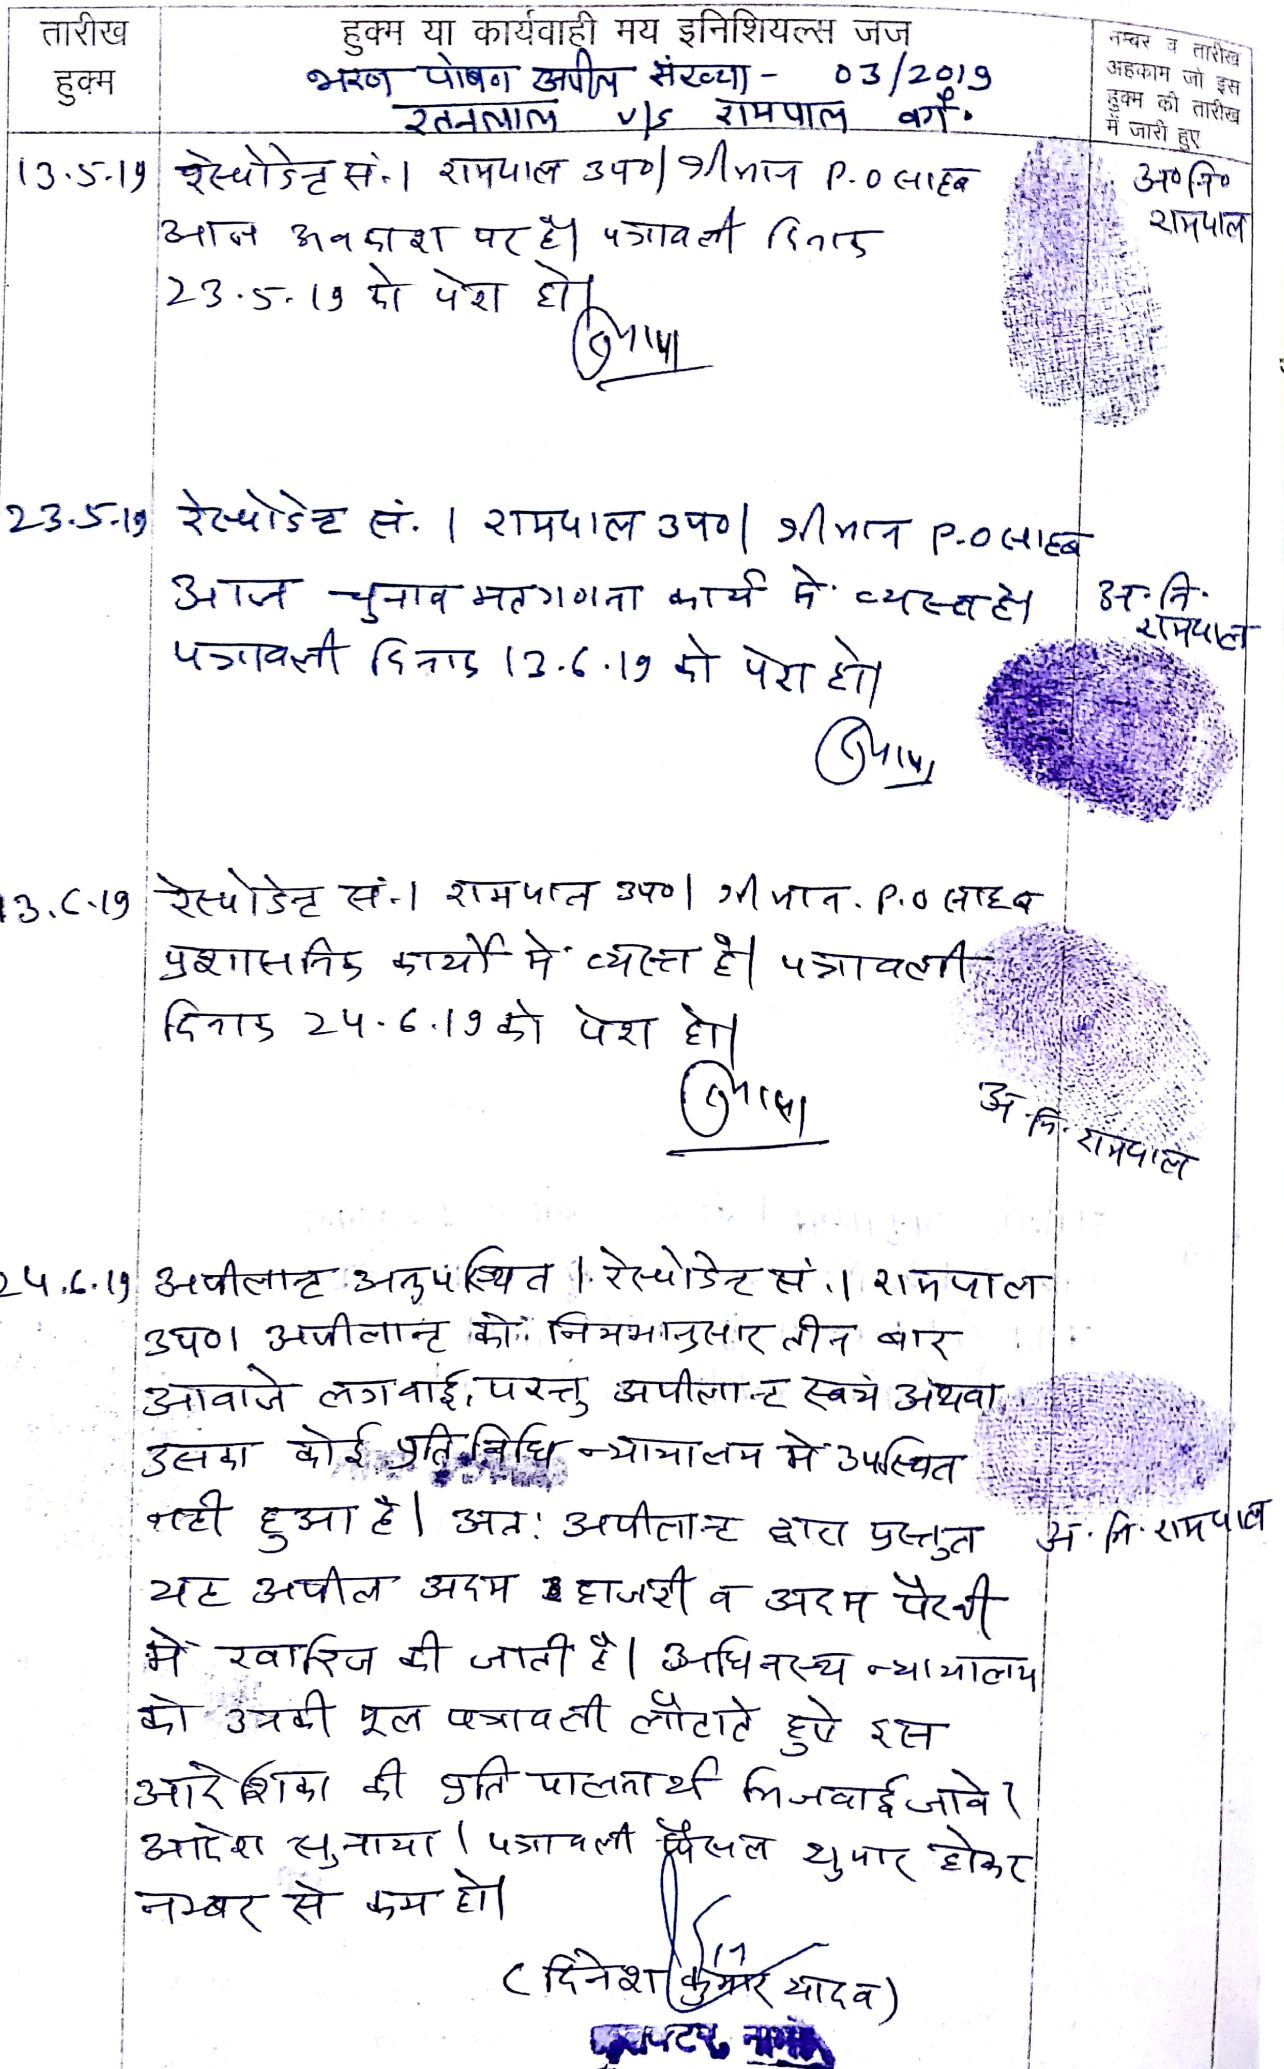 तारीख
हुक्म
हुक्म या कार्यवाही मय इनिशियल्स जज
भरण पोषण अपील संख्या - 03/2019
रतनलाल v/s रामपाल वगै.
नम्बर व तारीख
अहकाम जो इस
हुक्म की तारीख
में जारी हुए
13.5.19 रेस्पोडेन्ट सं.1 रामपाल उप०। श्रीमान P.O साहब
आज अवकाश पर है। पत्रावली दिनांक
23.5.19 को पेश हो।
अ०नि०
रामपाल
23.5.19 रेस्पोडेन्ट सं. 1 रामपाल उप०। श्रीमान P.O साहब
आज चुनाव मतगणना कार्य में व्यस्त है।
पत्रावली दिनांक 13.6.19 को पेश हो।
अ.नि.
रामपाल
13.6.19 रेस्पोडेन्ट सं.1 रामपाल उप०। श्रीमान. P.O साहब
प्रशासनिक कार्यो में व्यस्त है। पत्रावली
दिनांक 24.6.19 को पेश हो।
अ.नि. रामपाल
24.6.19 अपीलान्ट अनुपस्थित। रेस्पोडेन्ट सं.1 रामपाल
उप०। अपीलान्ट को नियमानुसार तीन बार
आवाजे लगवाई, परन्तु अपीलान्ट स्वयं अथवा
उसका कोई प्रतिनिधि न्यायालय में उपस्थित
नही हुआ है। अत: अपीलान्ट द्वारा प्रस्तुत
यह अपील अदम हाजरी व अदम पैरवी
में खारिज की जाती है। अधिनस्थ न्यायालय
को उनकी मूल पत्रावली लौटाते हुऐ इस
आदेशिका की प्रति पालनार्थ भिजवाई जावे।
आदेश सुनाया। पत्रावली फैसल शुमार होकर
नम्बर से कम हो।
अ.नि. रामपाल
(दिनेश कुमार यादव)